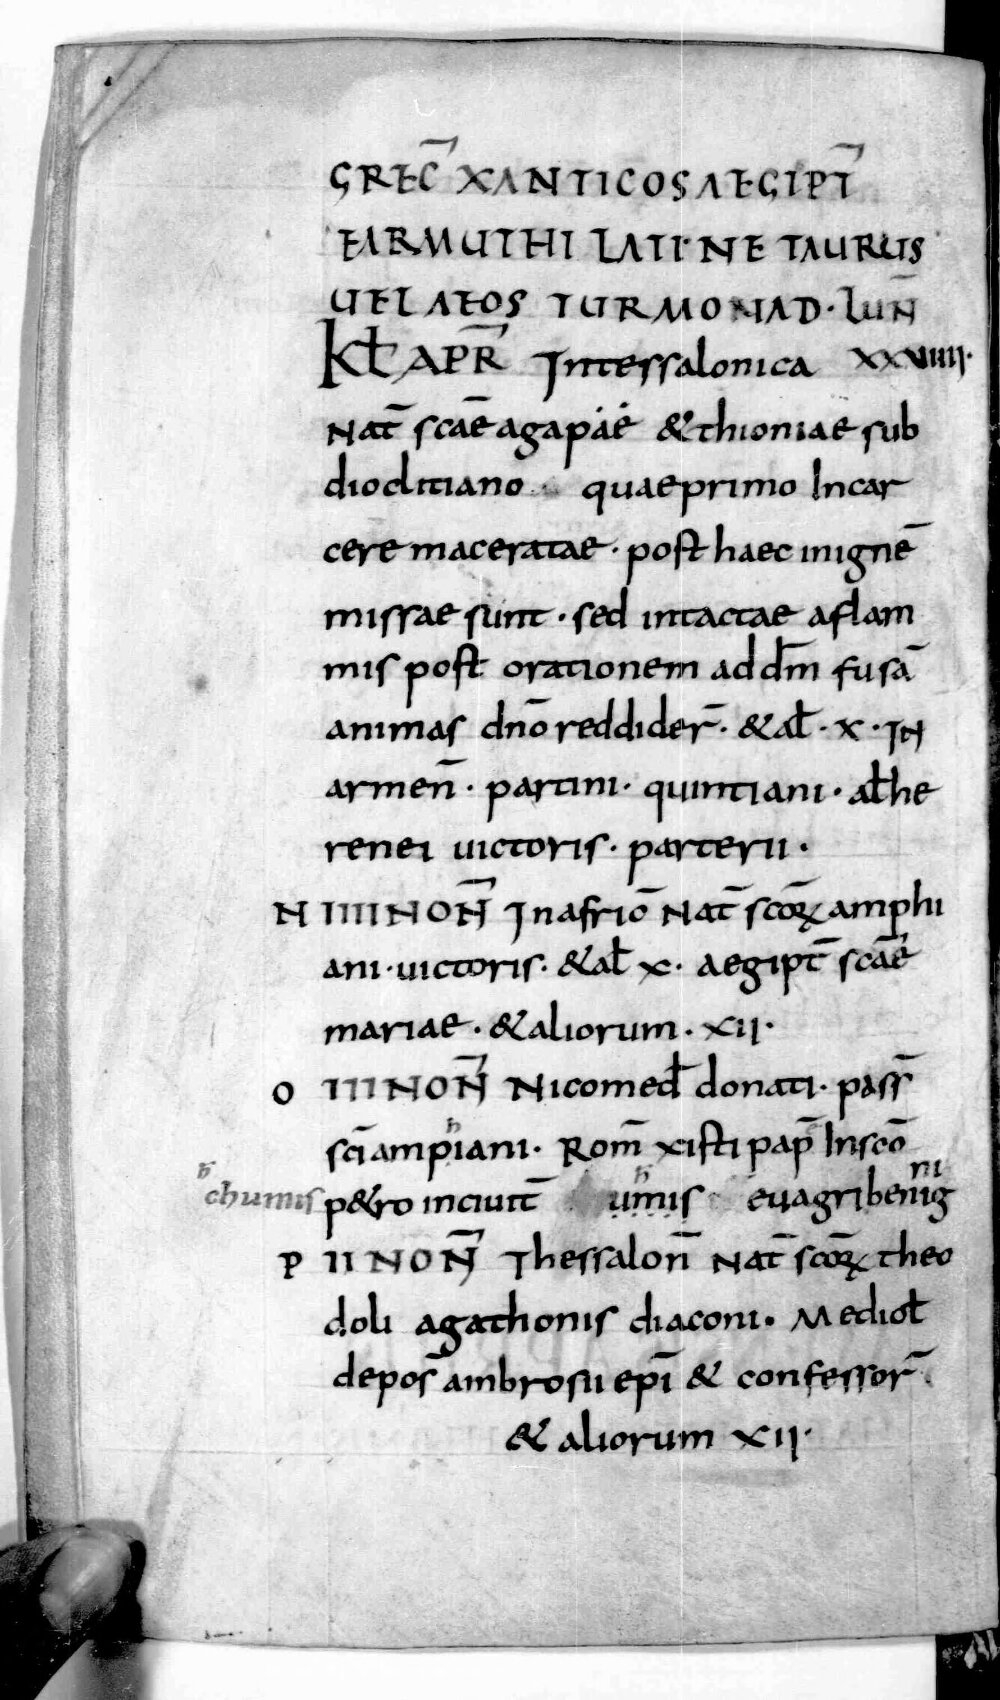 GREC̄ XANTICOS AEGIPT̄
FARMUTHI LATI·NE TAURUS
UEL AEOS TURMONAD· LUN̄
KƚAPR̄ Intessalonica XXVIIII·
Nat̄ scāe agapae &thioniae sub
dioclitiano quaeprimo Incar
cere maceratae · post haec inignē
missae sunt · sed intactae aflam
mis post orationem ad dm̄ fusā
animas dnō reddider̄ · &aƚ · x · IN
armen̄ · partini · quintiani · aƚhe
renei uictoris · parterii ·
N IIII NON̄ Inafriō Nat̄ scōꝝ amphi
ani · uictoris · &aƚ x · aegipt̄ scāe
mariae · &aliorum · XII ·
O III NON̄ Nicomeđ donati · pass̄
scī ampiani · Rom̄ xisti pap̄ Inscō
chumis p&ro inciuit̄ umis euagri benigni
P II NON̄ Thessalon̄ Nat̄ scōꝝ theo
doli agathonis diaconi · Medioƚ
depos̄ ambrosii epī & confessor̄
& aliorum XII ·